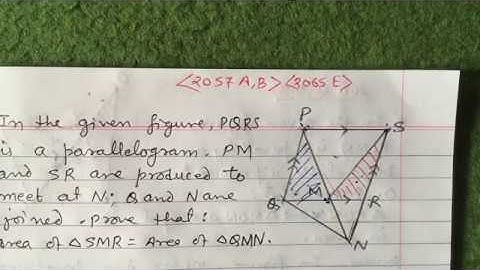 <2057 A,B> <2065 E>
In the given figure, PQRS
is a parallelogram. PM
and SR are produced to
meet at N; Q and N are
joined. Prove that:
area of △SMR = Area of △QMN.
P
S
Q
M
R
N